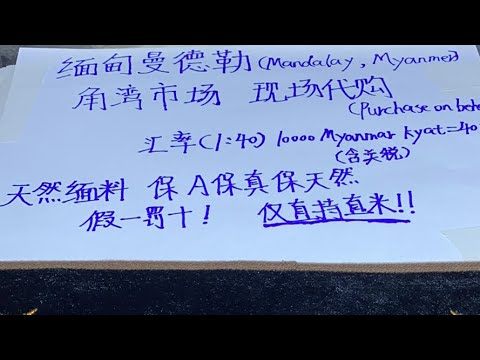 缅甸曼德勒(Mandalay, Myanmer)
角湾市场 现场代购
(Purchase on behe
汇率(1:40) 10000 Myanmar kyat=40
(含关税)
天然缅料 保A保真保天然
假一罚十! 仅直播直米!!